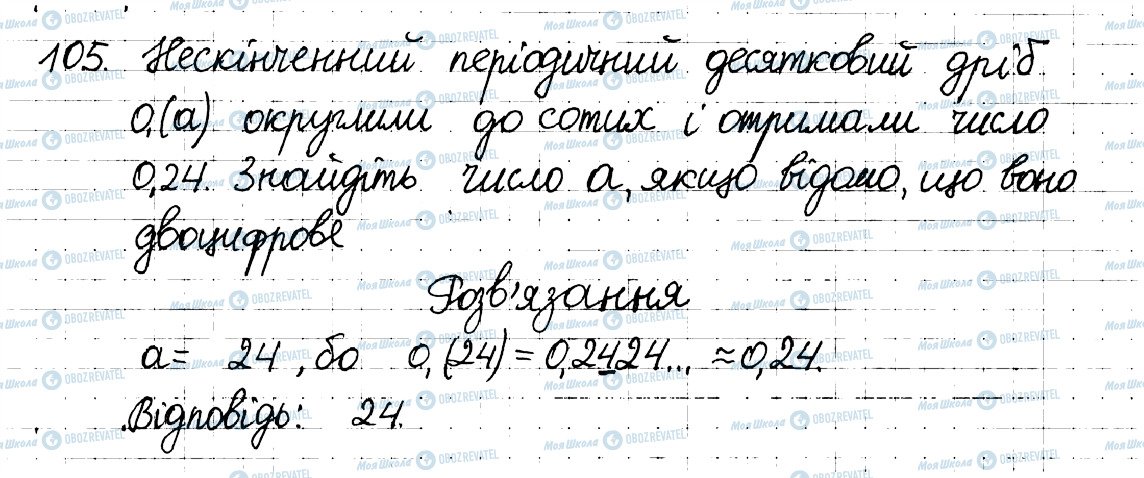 105. Нескінченний періодичний десятковий дріб
0,(а) округлили до сотих і отримали число
0,24. Знайдіть число а, якщо відомо, що воно
двоцифрове
Розв'язання
а = 24, бо 0,(24) = 0,2424... ≈ 0,24.
Відповідь: 24.